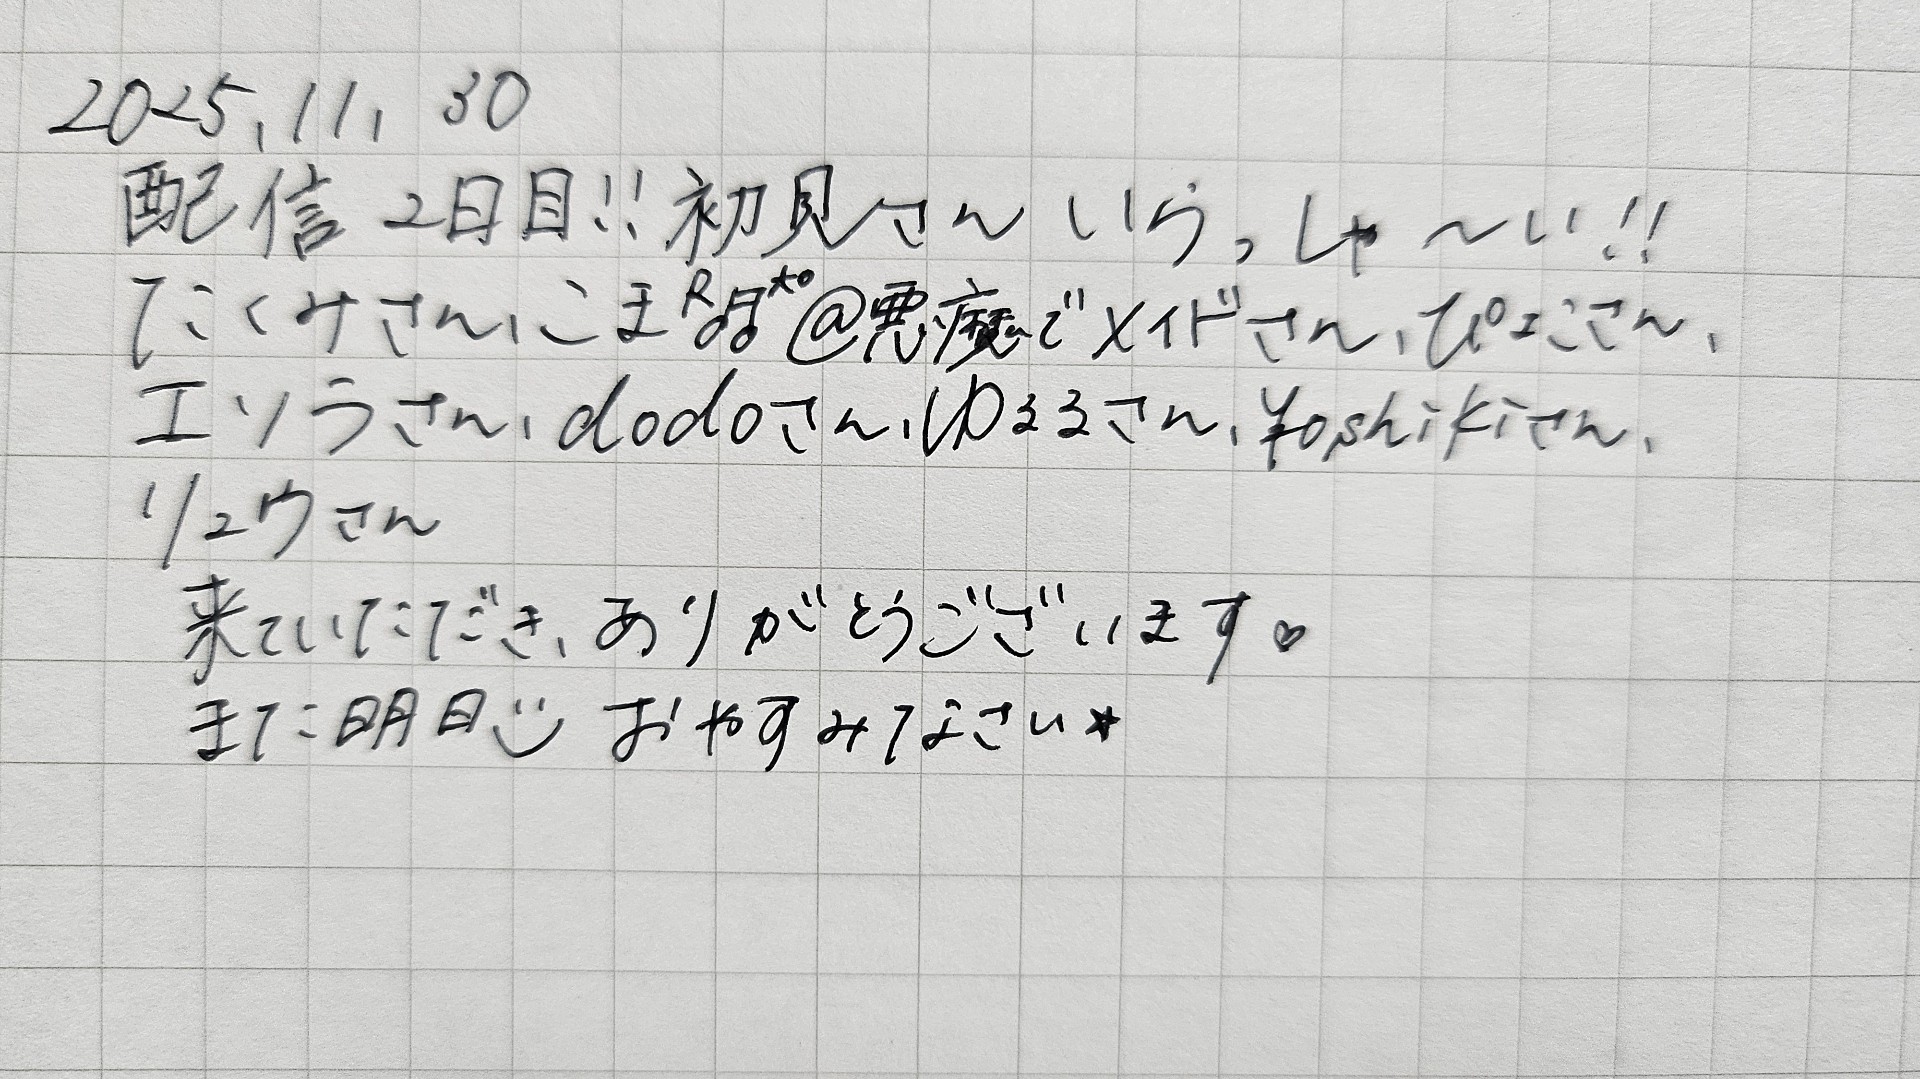 2025.11.30
配信2日目!!初見さんいらっしゃ〜い!!
たくみさん、こま@悪魔でメイドさん、ぴょこさん、
エソラさん、dodoさん、ゆるるさん、¥oshikiさん、
リュウさん
来ていただき、ありがとうございます♡
また明日 おやすみなさい★